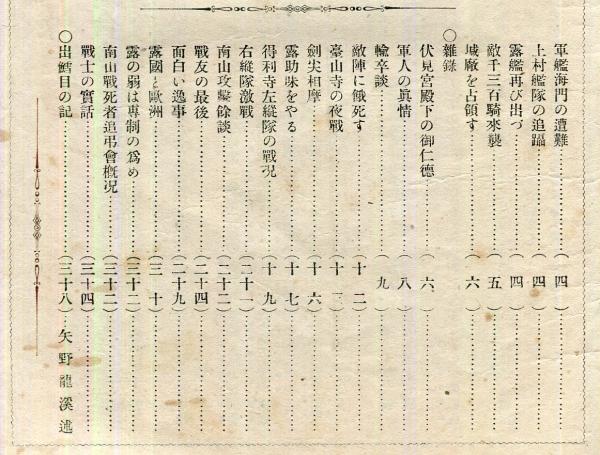 軍艦海門の遭難……………………(四
上村艦隊の追躡……………………(四
露艦再び出づ……………………(四
敵千三百騎來襲……………………(五
城廠を占領す……………………(六
〇雜錄
伏見宮殿下の御仁德……………………(六)
軍人の眞情……………………(八)
輸卒談……………………(九)
敵陣に餓死す……………………(十二)
臺山寺の夜戰……………………(十三)
劍尖相摩……………………(十六)
露助味をやる……………………(十七)
得利寺左縱隊の戰况……………………(十九)
右縱隊激戰……………………(二十一)
南山攻擊餘談……………………(二十二)
戰友の最後……………………(二十四)
面白い逸事……………………(二十九)
露國と歐洲……………………(三十)
露の弱は專制の爲め……………………(三十二)
南山戰死者追弔會槪况……………………(三十二)
戰士の實話……………………(三十四)
〇出鱈目の記……………………(三十八)矢野龍溪述